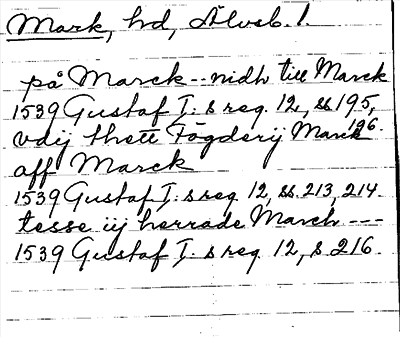 Mark, hd, Älvsb. l.
på Marck -- nidh till Marck
1539 Gustaf I:s reg. 12, ss. 195,
196.
vdij thett Fögderij Marck
aff Marck
1539 Gustaf I:s reg. 12, ss. 213, 214.
tesse iij herrade March ---
1539 Gustaf I:s reg. 12, s. 216.